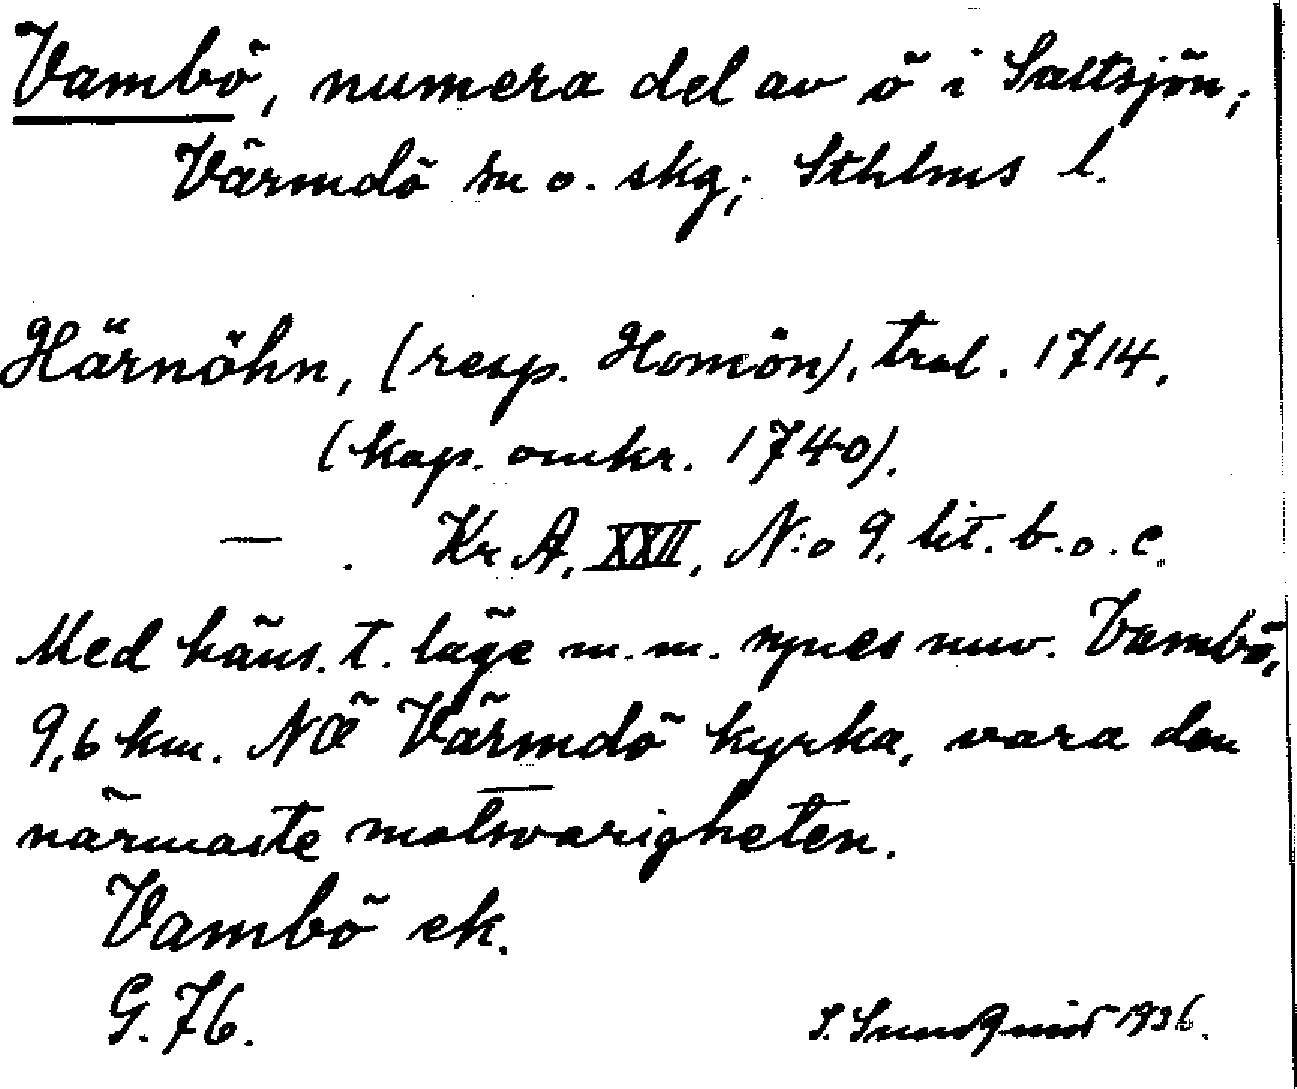 Vambö, numera del av ö i Saltsjön;
Värmdö sn o. skg; Sthlms l.
Härnöhn, (resp. Homön), tral. 1714,
(kop. omkr. 1740).
— . Kr. A. XXII, N:o 9, lit. b. o. c.
Med häns. t. läge m.m. synes nuv. Vambö,
9,6 km. NÖ Värmdö kyrka, vara den
närmaste motsvarigheten.
Vambö ek.
G. 76.
S. Sundquist 1936.